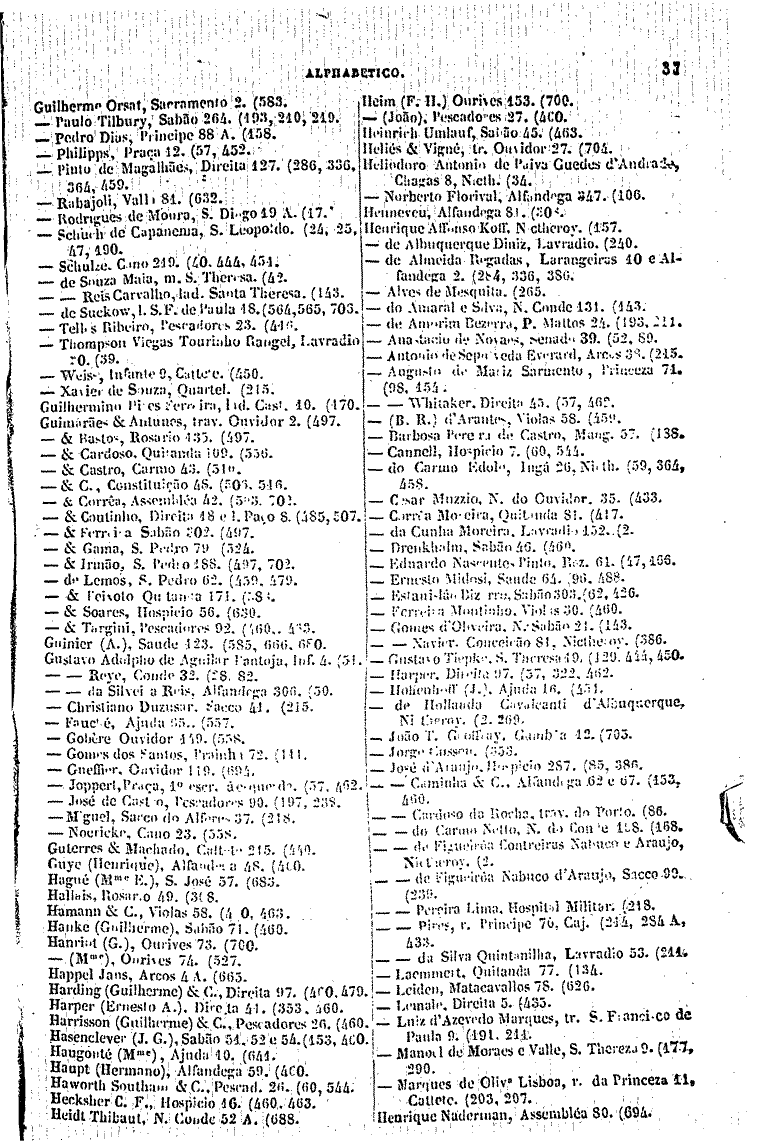 ALPHABETICO.
37
Guilherme Orsat, Sacramento 2. (583.
— Paulo Tilbury, Sabão 264. (193, 210, 219.
— Pedro Dias, Principe 88 A. (158.
— Philipps, Praça 12. (57, 452.
— Pinto de Magalhães, Direita 127. (286, 336,
364, 459.
— Rabajoli, Valla 81. (632.
— Rodrigues de Moura, S. Diogo 19 A. (17.
— Schuch de Capanema, S. Leopoldo. (24, 25,
47, 190.
— Schulze. Cano 219. (40, 444, 451.
— de Souza Maia, m. S. Theresa. (42.
— — Reis Carvalho, lad. Santa Theresa. (143.
— de Suckow, l. S. F. de Paula 18. (564, 565, 703.
— Telles Ribeiro, Pescadores 23. (416.
— Thompson Viegas Tourinho Rangel, Lavradio
(39.
— Weiss, Infante 9, Cattete. (450.
— Xavier de Souza, Quartel. (215.
Guilhermino Pires Ferreira, lad. Cast. 10. (170.
Guimarães & Antunes, trav. Ouvidor 2. (497.
— & Bastos, Rosario 135. (497.
— & Cardoso, Quitanda 109. (536.
— & Castro, Carmo 43. (510.
— & C., Constituição 48. (503, 516.
— & Corrêa, Assembléa 42. (593, 702.
— & Coutinho, Direita 18 e l. Paço 8. (485, 507.
— & Ferreira Sabão 302. (497.
— & Gama, S. Pedro 79 (524.
— & Irmão, S. Pedro 188. (497, 702.
— de Lemos, S. Pedro 62. (459, 479.
— & Peixoto Quitanda 171.
— & Soares, Hospicio 56. (630.
— & Targini, Pescadores 92. (460,
Guinier (A.), Saude 123. (585, 666, 680.
Gustavo Adolpho de Aguilar Pantoja, Inf. 4. (51.
— — Reye, Conde 32. (28, 82.
— — da Silveira Reis, Alfandega 306. (50.
— Christiano Duzusar, Sacco 41. (215.
— Fauché, Ajuda 95. (557.
— Gobère Ouvidor 149. (558.
— Gomes dos Santos, Prainha 72. (111.
— Gueffier, Ouvidor 119. (694.
— Joppert, Praça, 1º escr. á esquerda. (57, 462.
— José de Castro, Pescadores 90. (197, 238.
— Miguel, Sacco do Alferes 37. (218.
— Noericke, Cano 23. (558.
Guterres & Machado, Cattete 215. (449.
Guye (Henrique), Alfandega 48. (460.
Hagué (Mme E.), S. José 57. (683.
Hallais, Rosario 49.
Hamann & C., Violas 58. (460, 463.
Hanke (Guilherme), Sabão 71. (460.
Hanriot (G.), Ourives 73. (700.
— (Mme), Ourives 74. (527.
Happel Jans, Arcos 4 A. (665.
Harding (Guilherme) & C., Direita 97. (460, 479.
Harper (Ernesto A.), Direita 41. (353, 460.
Harrisson (Guilherme) & C., Pescadores 26. (460.
Hasenclever (J. G.), Sabão 51, 52 e 54. (153, 460.
Haugonté (Mme), Ajuda 10. (641.
Haupt (Hermano), Alfandega 59. (460.
Haworth Southam & C., Pescad. 26. (60, 544.
Hecksher C. F., Hospicio 16. (460, 463.
Heidt Thibaut, N. Conde 52 A. (688.
Heim (F. H.) Ourives 153. (700.
— (João), Pescadores 27. (460.
Heinrich Umlauf, Sabão 45. (463.
Heliés & Vigné, tr. Ouvidor 27. (704.
Heliodoro Antonio de Paiva Guedes d'Andrade,
Chagas 8, Nicth. (34.
— Norberto Florival, Alfandega 347. (106.
Henneveu, Alfandega 81.
Henrique Affonso Koff, Nictheroy. (157.
— de Albuquerque Diniz, Lavradio. (240.
— de Almeida Regadas, Larangeiras 10 e Al-
fandega 2. (284, 336, 386.
— Alves de Mesquita. (265.
— do Amaral e Silva, N. Conde 131. (143.
— de Amorim Bezerra, P. Mattos 24. (193, 211.
— Anastacio de Novaes, senado 39. (52, 89.
— Antonio de Sepulveda Everard, Arcos 38. (215.
— Augusto de Mariz Sarmento, Princeza 71.
(98, 154.
— — Whitaker, Direita 45. (57, 462.
— (B. R.) d'Arantes, Violas 58. (459.
— Barbosa Pereira de Castro, Mang. 57. (138.
— Cannell, Hospicio 7. (60, 544.
— do Carmo Edolo, Ingá 26, Nicth. (59, 364,
458.
— Cesar Muzzio, N. do Ouvidor. 35. (433.
— Corrêa Moreira, Quitanda 81. (417.
— da Cunha Moreira, Lavradio 152. (2.
— Drenkhalm, Sabão 46. (460.
— Eduardo Nascentes Pinto, Roz. 61. (47, 166.
— Ernesto Midosi, Saude 64. (96, 488.
— Estanislão Bizerra, Sabão 303. (62, 426.
— Ferreira Moutinho, Violas 30. (460.
— Gomes d'Oliveira, N. Sabão 21. (143.
— — Xavier, Conceição 81, Nictheroy. (386.
— Gustavo Tiepke, S. Theresa 19. (129, 444, 450.
— Harper, Direita 97. (57, 322, 462.
— Hohenhoff (J.), Ajuda 16. (451.
— de Hollanda Cavalcanti d'Albuquerque,
Nictheroy. (2, 269.
— João T. Geoffray, Gamboa 12. (705.
— Jorge Cussen. (553.
— José d'Araujo, Hospicio 287. (85, 386.
— — Caminha & C., Alfandega 62 e 67. (153,
460.
— — Cardoso da Rocha, trav. do Porto. (86.
— — do Carmo Netto, N. do Conde 158. (168.
— — de Figueirôa Contreiras Nabuco e Araujo,
Nictheroy. (2.
— — de Figueirôa Nabuco d'Araujo, Sacco 99.
(239.
— — Pereira Lima, Hospital Militar. (218.
— — Pires, r. Principe 76, Caj. (244, 284 A,
433.
— — da Silva Quintanilha, Lavradio 53. (244.
— Laemmert, Quitanda 77. (134.
— Leiden, Matacavallos 78. (626.
— Lemale, Direita 5. (435.
— Luiz d'Azevedo Marques, tr. S. Francisco de
Paula 9. (191, 211.
— Manoel de Moraes e Valle, S. Thereza 9. (177,
290.
— Marques de Olivª Lisboa, r. da Princeza 11,
Cattete. (203, 207.
Henrique Naderman, Assembléa 80. (694.